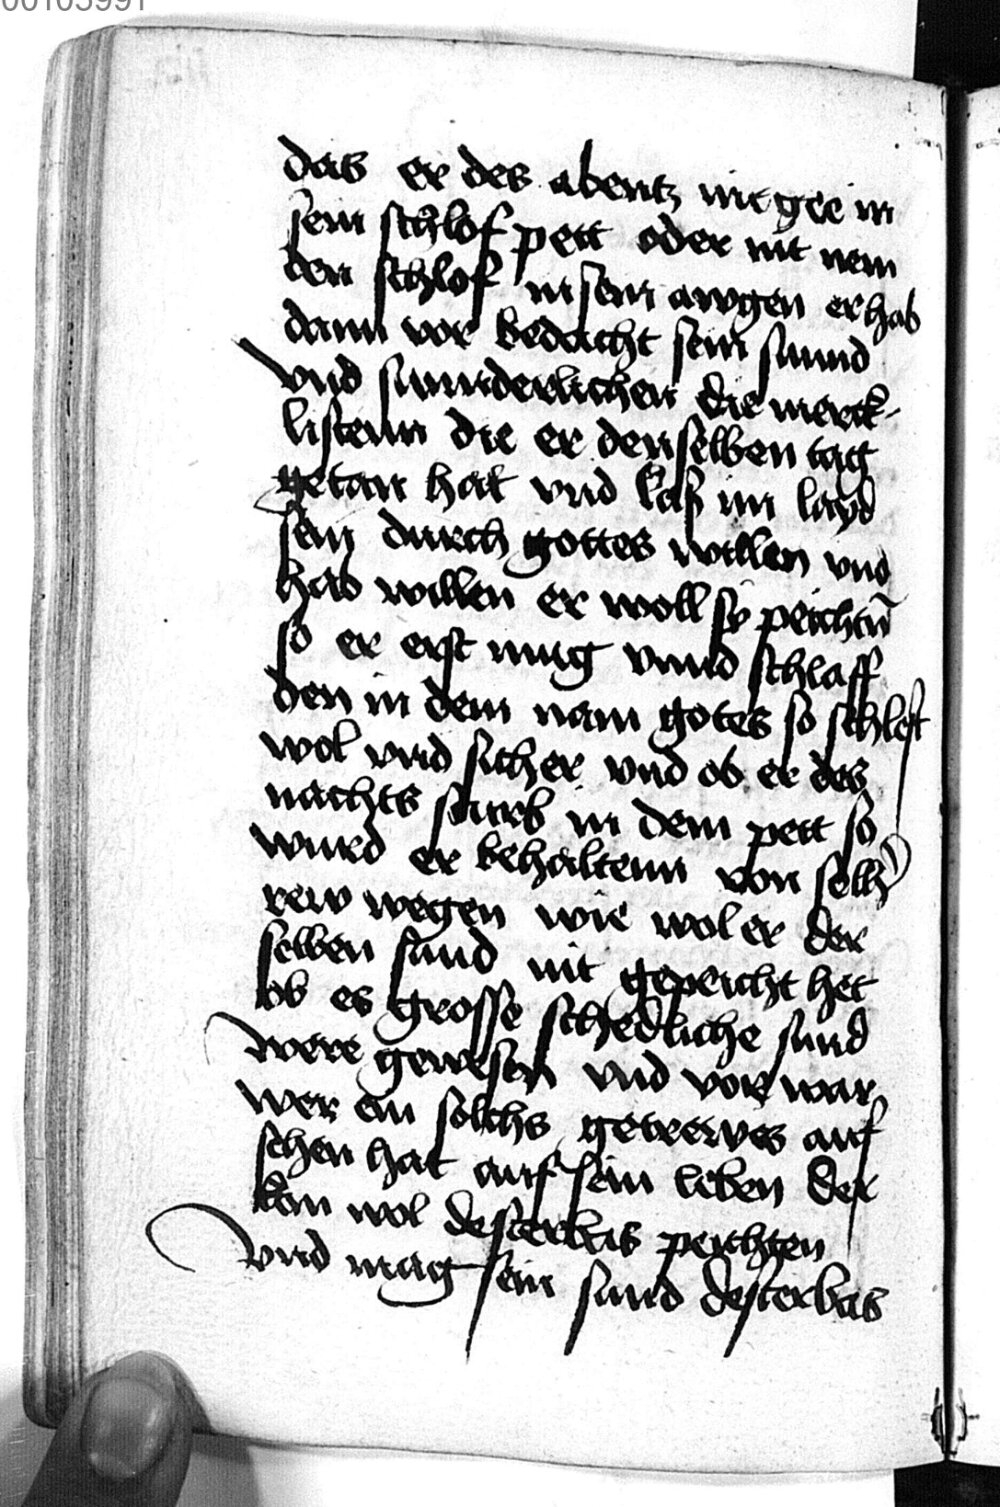 00103991
das er des abentz nit gee in
sein schlof pett oder nit nem
den schlof in sein awgen er hab
dann vor bedacht sein sunnd
vnd sunnderlichen die merck-
listenn die er denselben tag
getan hat vnd las im layd
sein durch gottes willen vnd
hab willen er woll sy peichtn̄
so er erst mug vnnd schlaff
den in dem nam gotes so schleft
wol vnd sicher vnd ob er des
nachts sturb in dem pett so
wurd er behaltenn von sollher
rew wegen wie wol er der
selben sund nit gepeicht het
ob es grosse schedliche sund
were gewesen vnd vor war
wer ein solchs getrewes auf
sehen hat auf sein leben der
kan wol desterbas peichten
vnd mag sein sund desterbas